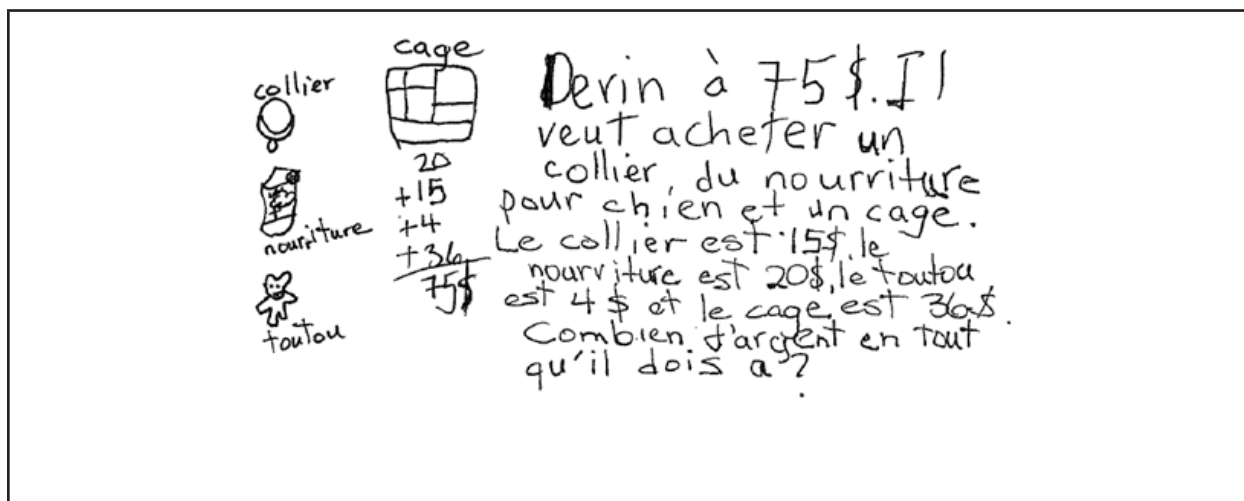 collier
nourriture
toutou
cage
20
+15
+4
+36
75$
Devin à 75$. Il
veut acheter un
collier, du nourriture
pour chien et un cage.
Le collier est 15$, le
nourriture est 20$, le toutou
est 4$ et le cage est 36$.
Combien d'argent en tout
qu'il dois a?